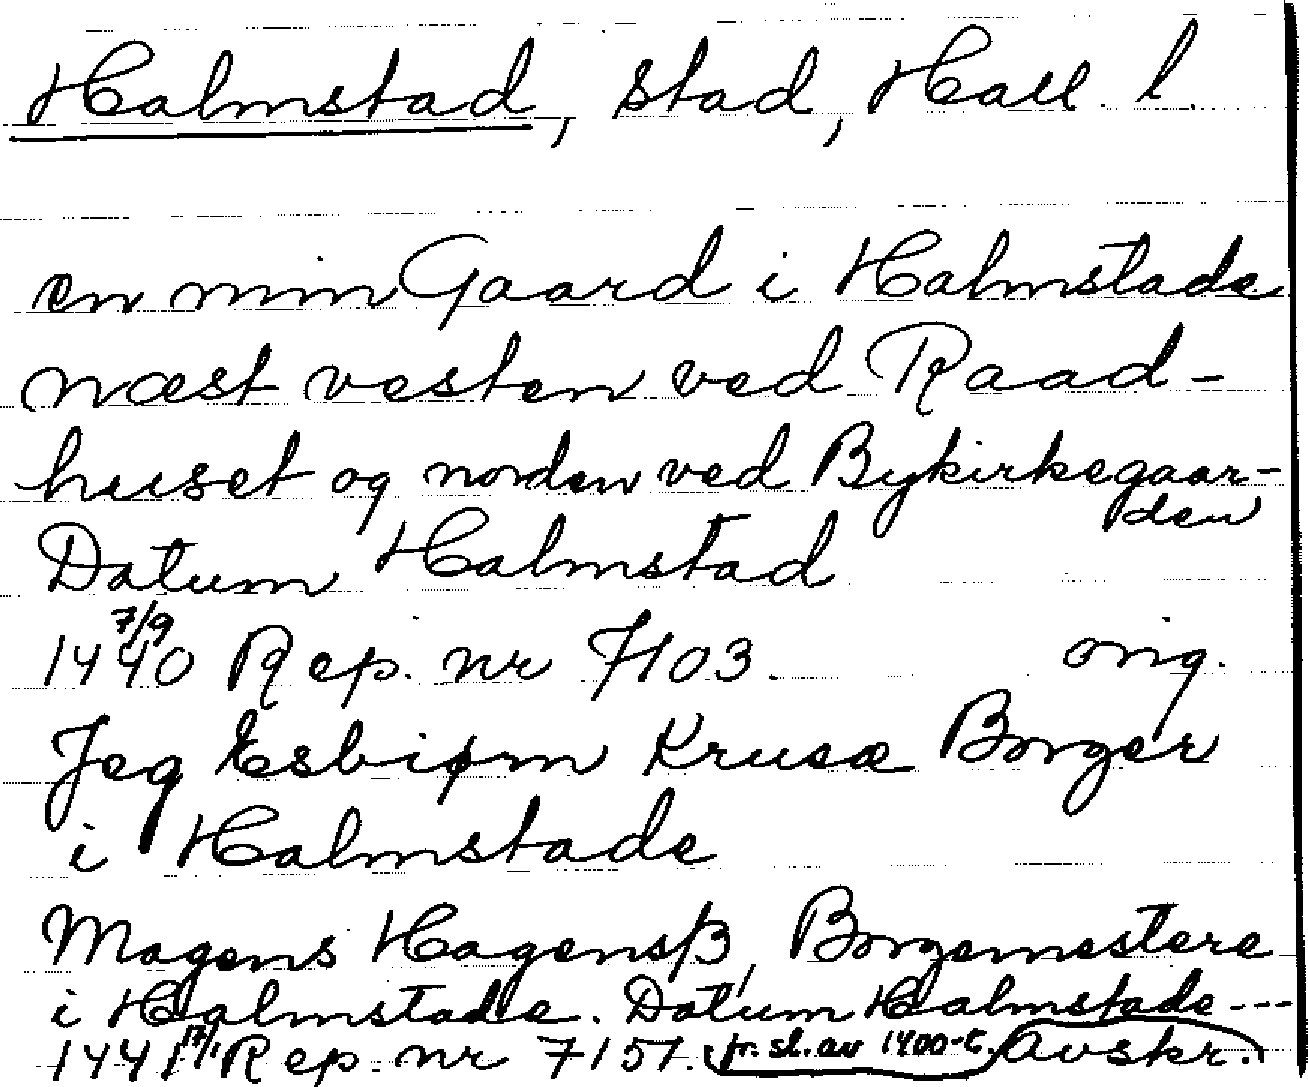 Halmstad, stad, Hall l.
en min Gaard i Halmstade
næst vesten ved Raad-
huset og norden ved Bykirkegaar-
den
Datum Halmstad
7/9
1440 Rep. nr 7103. orig.
Jeg Esbiørn Krusæ Borger
i Halmstade
Magens Hagensß, Borgemestere
i Halmstade. Datum Halmstade ---
1441 Rep. nr 7151. fr. sl. av 1400-t. Avskr.